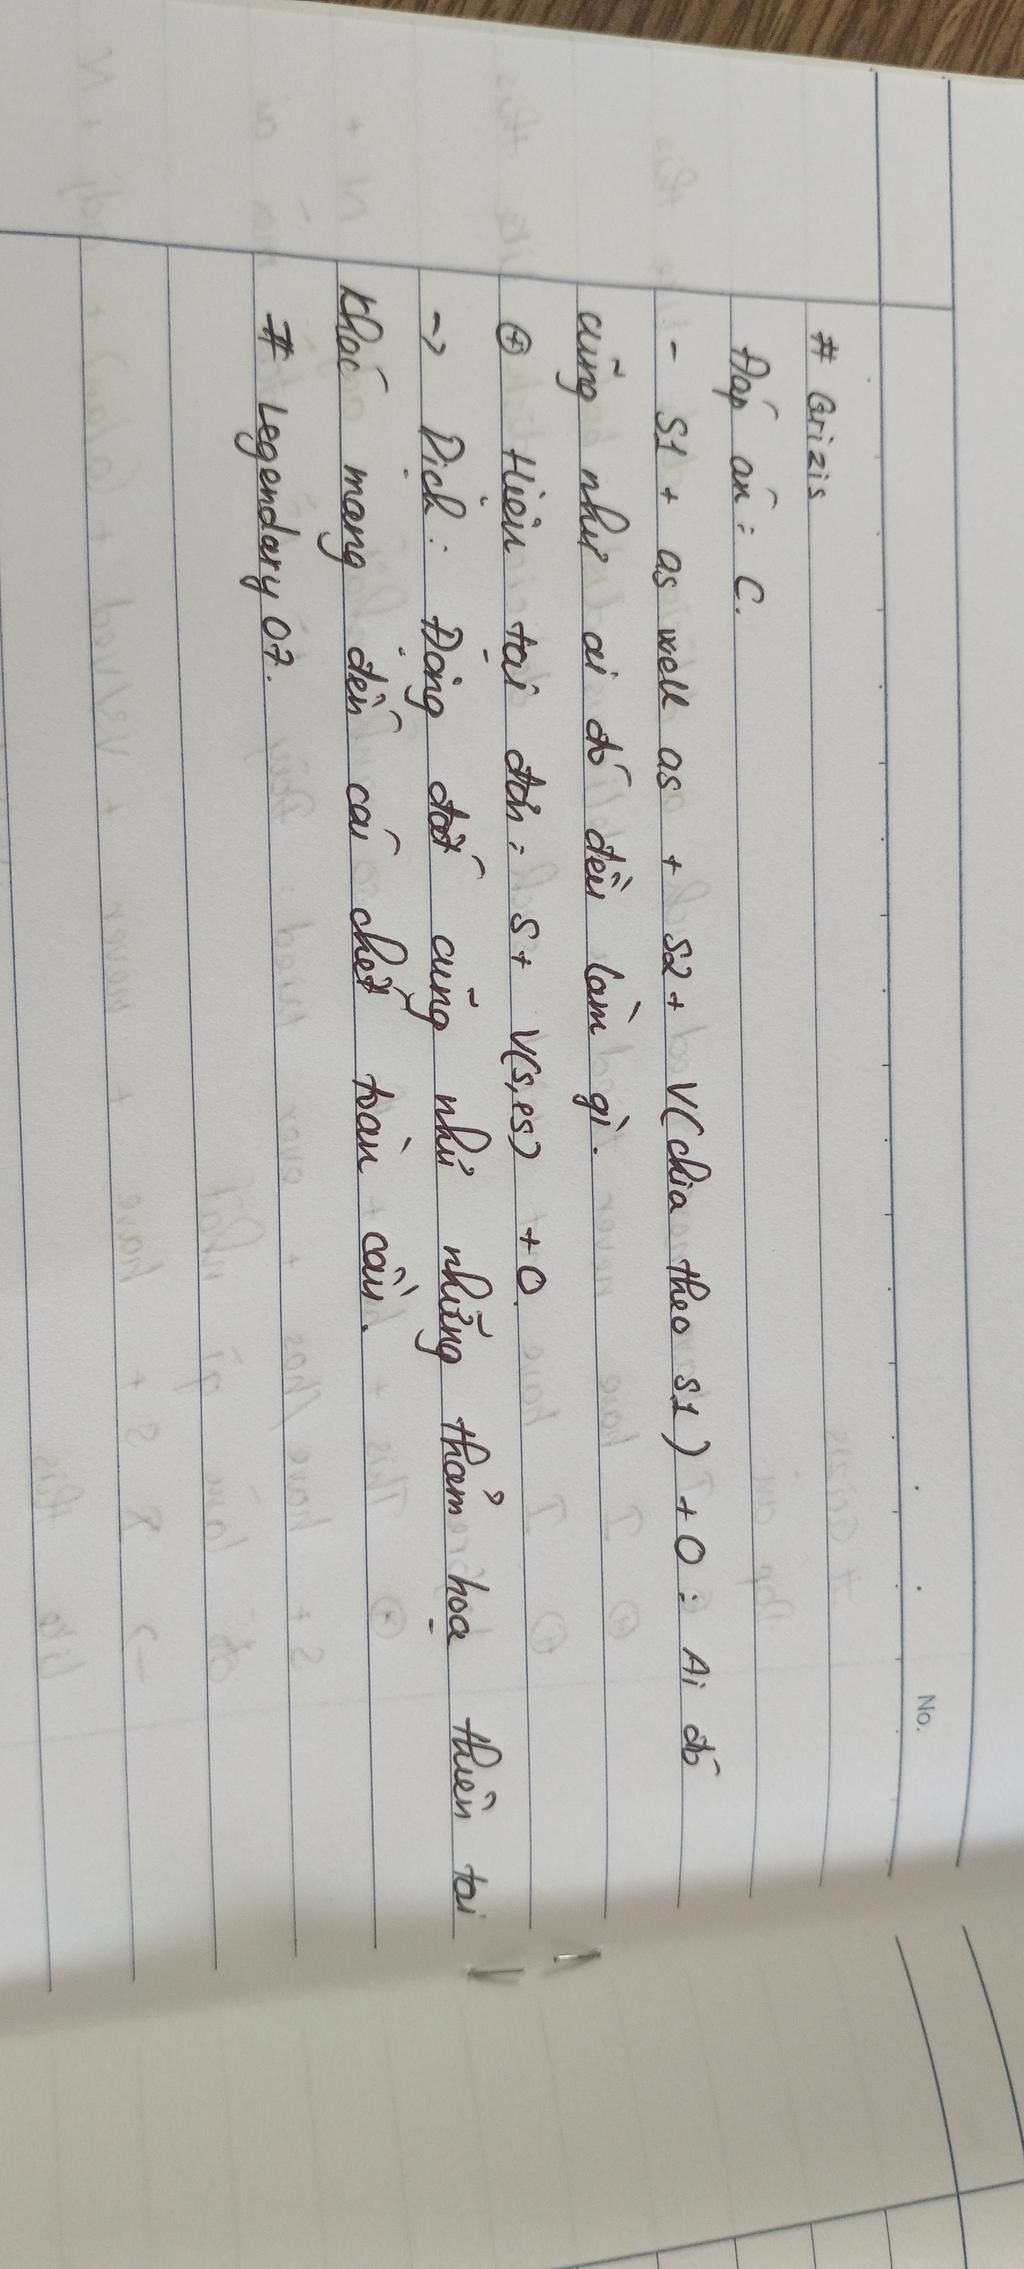 No.
# Grizis
Đáp án : C.
- S1 + as well as + S2 + V(chia theo S1) + O : Ai đó
cũng như ai đó đều làm gì.
⊕ Hiện tại đơn : S + V(s,es) + O.
-> Dịch : Động đất cũng như những thảm họa thiên tai
khác mang đến cái chết toàn cầu.
# Legendary 07.